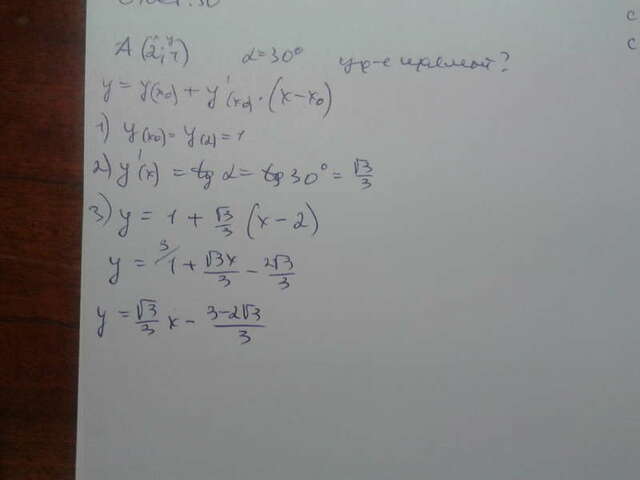 Ответ: 30
A (2; 1) α=30° ур-е прямой?
y = y(x₀) + y'(x₀) · (x-x₀)
1) y(x₀) = y(2) = 1
2) y'(x) = tg α = tg 30° = √3/3
3) y = 1 + √3/3 (x-2)
y = 1 + √3x/3 - 2√3/3
y = √3/3 x - 3-2√3/3
c
c